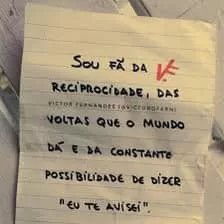 SOU FÃ DA
RECIPROCIDADE, DAS
VICTOR FERNANDES (@VICTORDFERN)
VOLTAS QUE O MUNDO
DÁ E DA CONSTANTE
POSSIBILIDADE DE DIZER
"EU TE AVISEI".